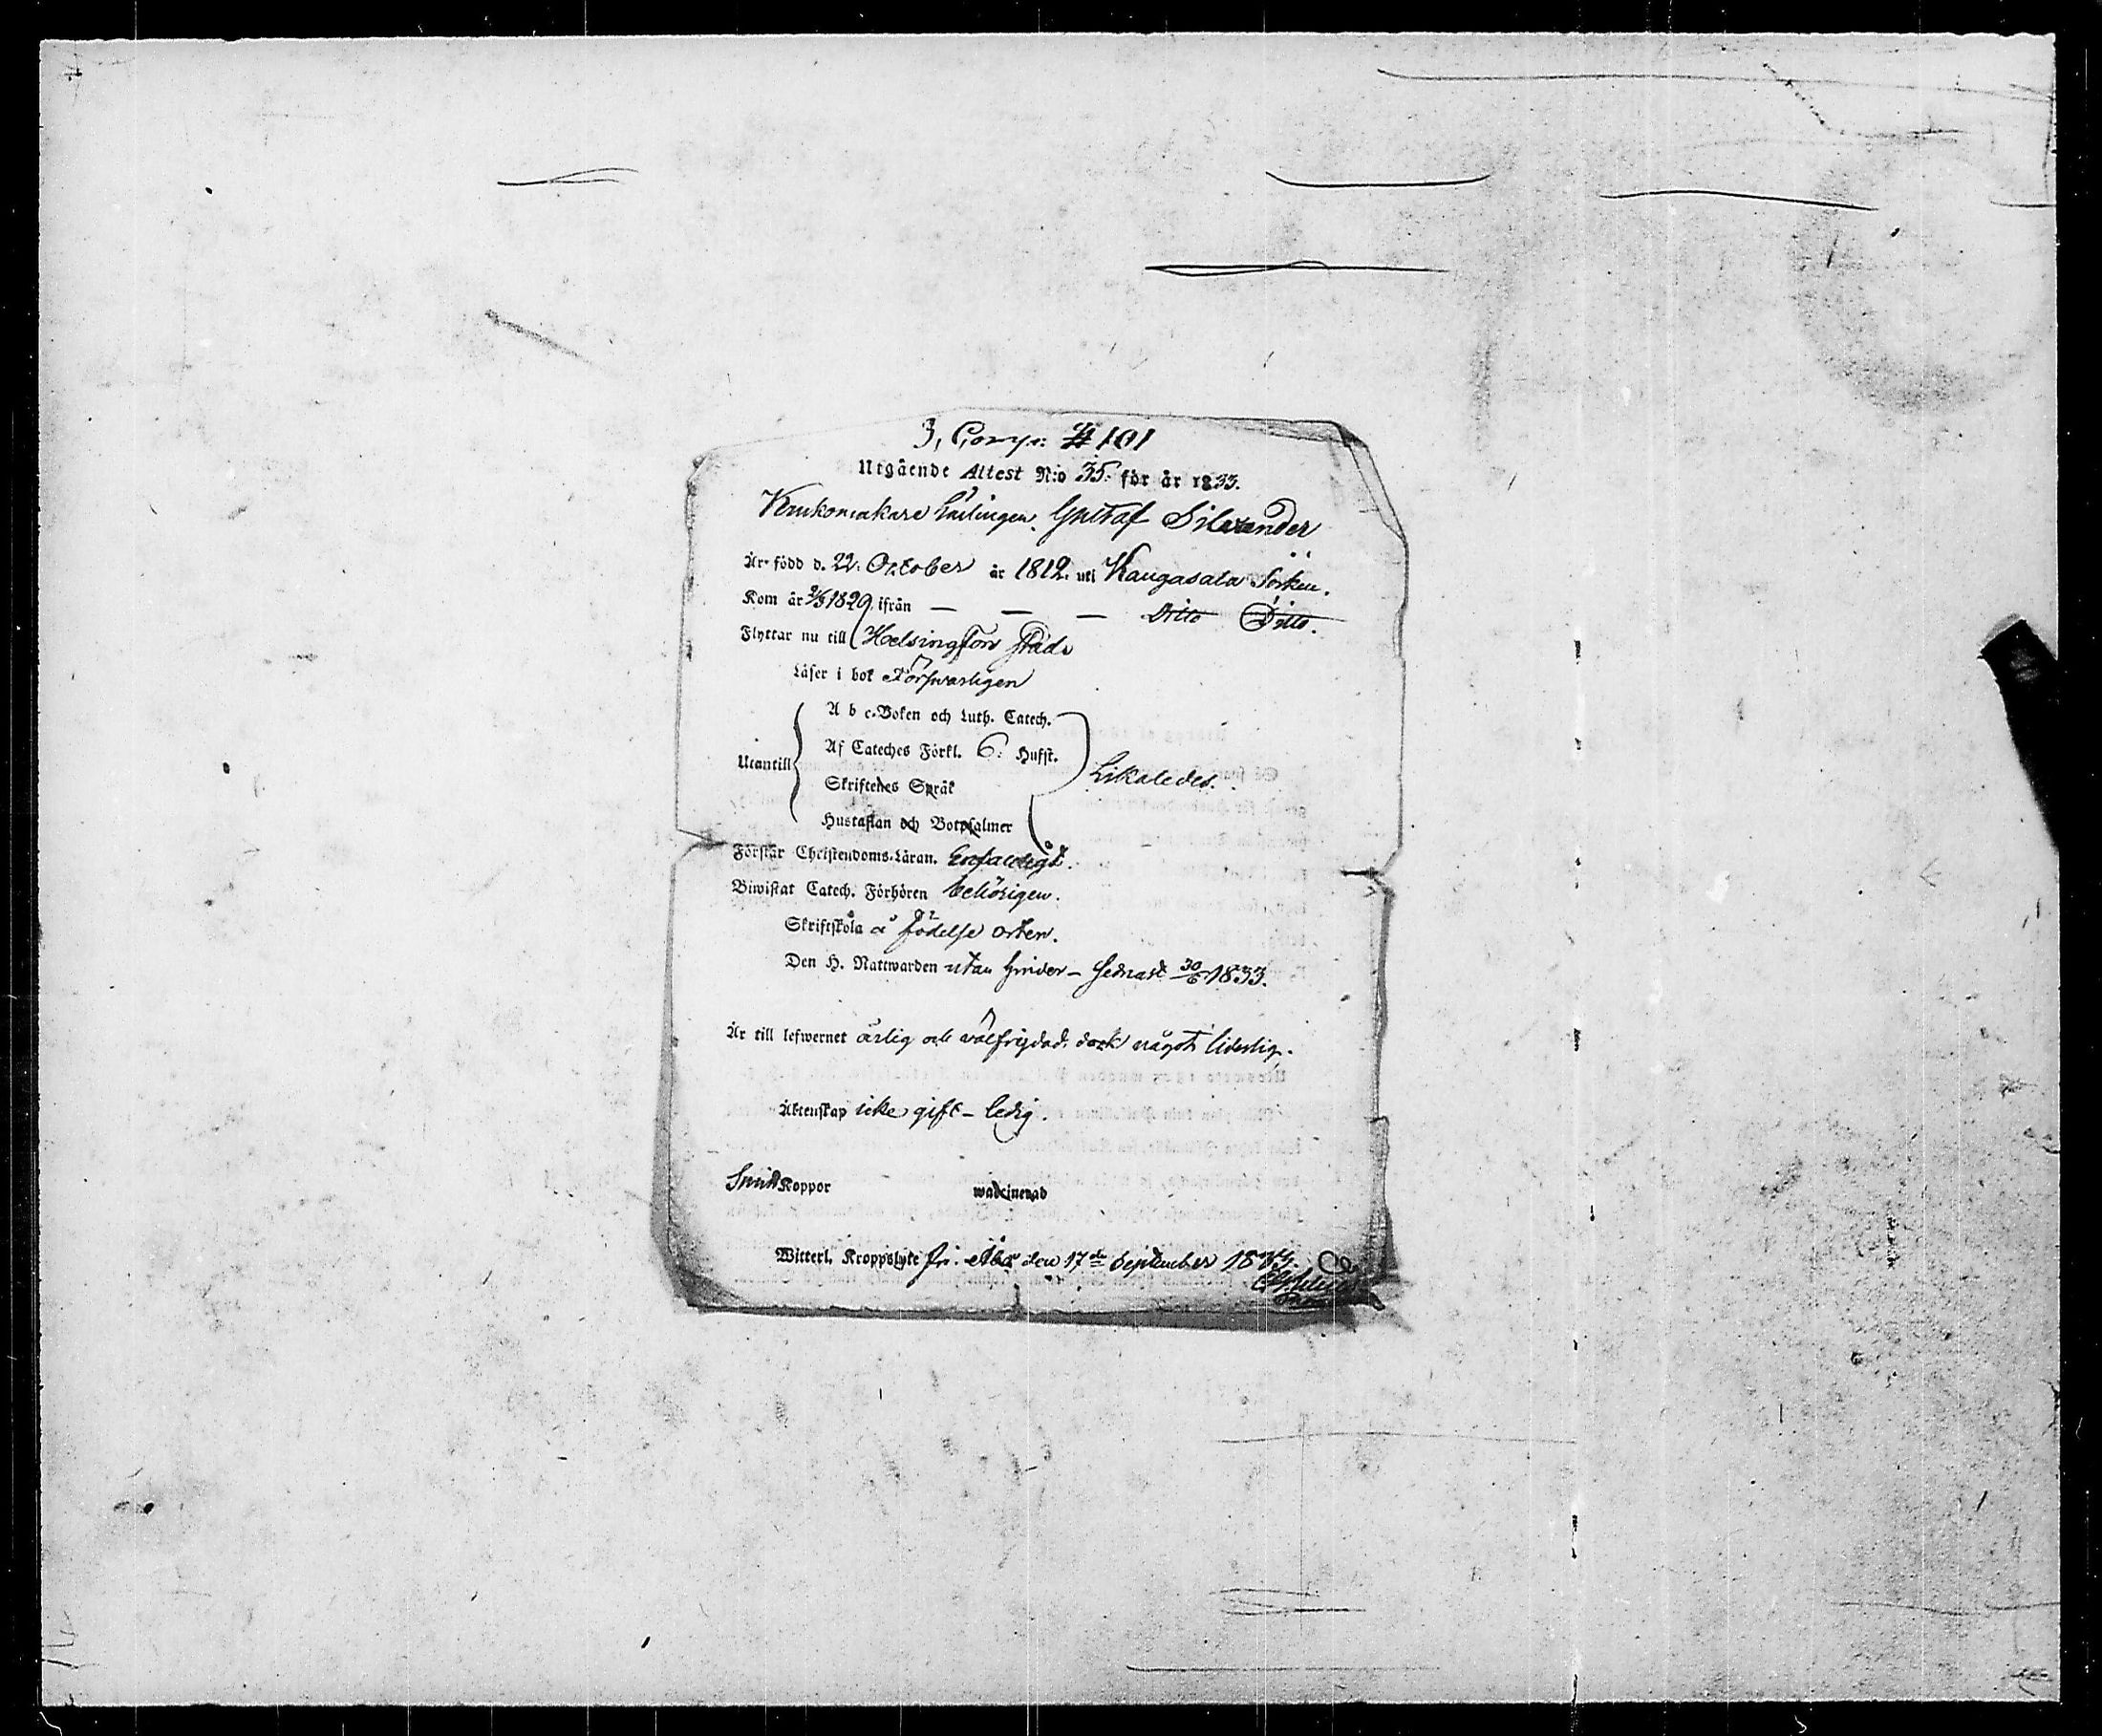 3, Comp: # 101
Utgående Attest N:o 35. för år 1833.
Krukomakare Lärlingen. Gustaf Silvander
Är född d. 22. October år 1812. uti Kangasala Socken.
Kom år 1829 ifrån — — — Ditto Ditto.
Flyttar nu till Helsingfors Stad
Läser i bok Förswarligen
A b c-Boken och Luth. Catech.
Af Cateches Förkl. 6: Hufst.
Utantill Likaledes.
Skriftenes Språk
Hustaflan och Botpsalmer
Förstår Christendoms-Läran. Enfaldigt.
Biwistat Catech. Förhören behörigen.
Skriftskola å födelse orten.
Den H. Nattwarden utan hinder – sednast 30/6 1833.
Är till lefwernet ärlig och välfrejdad, dock något liderlig.
Äktenskap icke gift – ledig.
Koppor waccinerad
Witterl. Kroppslyte fri. Åbo den 17de September